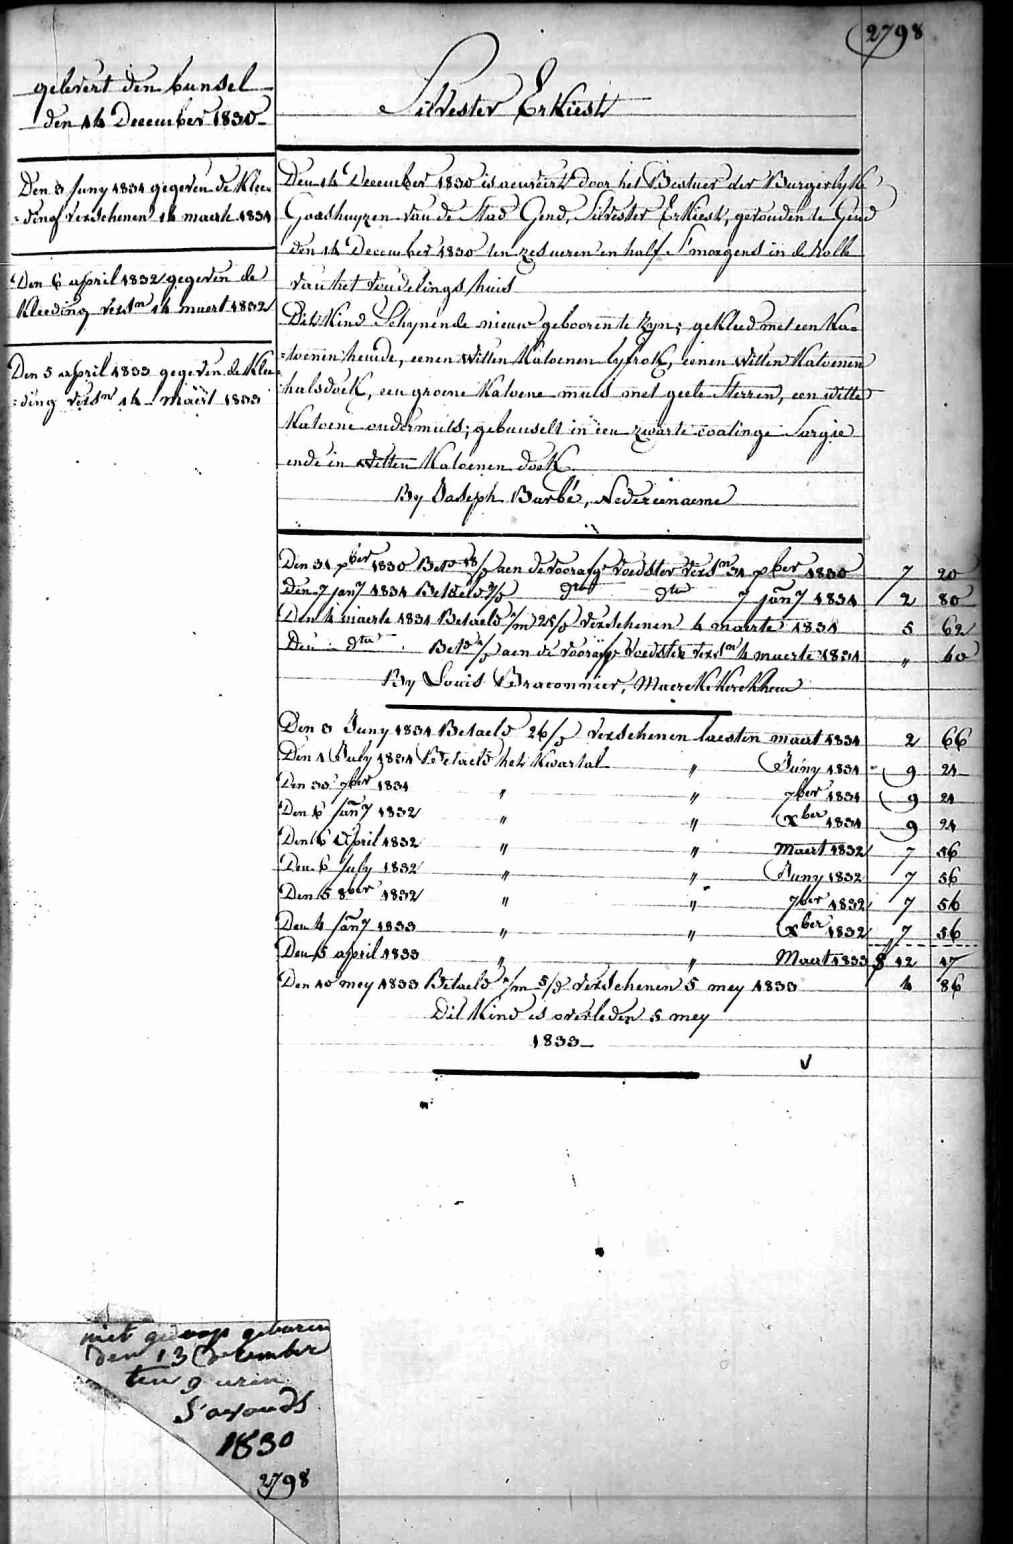 2798
gelevert den bunsel
den 14 December 1830
Silvester Erkiest
Den 3 Juny 1831 gegeven de Klee-
=ding verschenen 14 maerte 1831
Den 6 april 1832 gegeven de
Kleeding versn 14 maert 1832
Den 5 april 1833 gegeven de Klee
=ding versn 14 maert 1833
Den 14 December 1830 is acureert door het Bestuer der Burgerlyke
Godshuyzen van de Stad Gend, Silvester Erkiest, gevonden te Gend
den 14 December 1830 ten zes ueren en half S'morgens in de Rolle
van het Vondelings huis
Dit Kind Schynende nieuw gebooren te zyn; gekleed met een Ka=
=toenen hemde, eenen witten Katoenen lyfrok, eenen witten Katoenen
halsdoek, een groene Katoene muts met geele Sterren, een witte
Katoene ondermuts; gebunselt in een zwarte coatinge Sargie
ende in witten Katoenen doek.
By Joseph Burbé, Nedereenaeme
Den 31 xber 1830 Bet 18/d aen de voorafge voedster versn 31 xber 1830 7 20
Den 7 jany 1831 Betaeld 7/d dto dto 7 jany 1831 2 80
Den 4 maerte 1831 Betaeld 1/m 25/d verschenen 4 maerte 1831 5 62
Den dto Bet aen de voorafge voedster versn 4 maerte 1831 " 40
By Louis Braconnier, Maerckekerckhem
Den 3 Juny 1831 Betaeld 26/d verschenen laesten maert 1831 2 66
Den 1 July 1831 Betaeld het Kwartal " Juny 1831 9 24
Den 30 7ber 1831 " " 7ber 1831 9 24
Den 6 jany 1832 " " xber 1831 9 24
Den 6 april 1832 " " Maert 1832 7 56
Den 6 july 1832 " " Juny 1832 7 56
Den 5 8ber 1832 " " 7ber 1832 7 56
Den 4 jany 1833 " " xber 1832 7 56
Den 5 april 1833 " " Maert 1833 12 47
Den 10 mey 1833 Betaeld 1/m 5/d verschenen 5 mey 1833 4 86
Dit Kind is overleden 5 mey
1833
niet gedoopt geboren
den 13 December
ten 9 uren
S'avonds
1830
2798